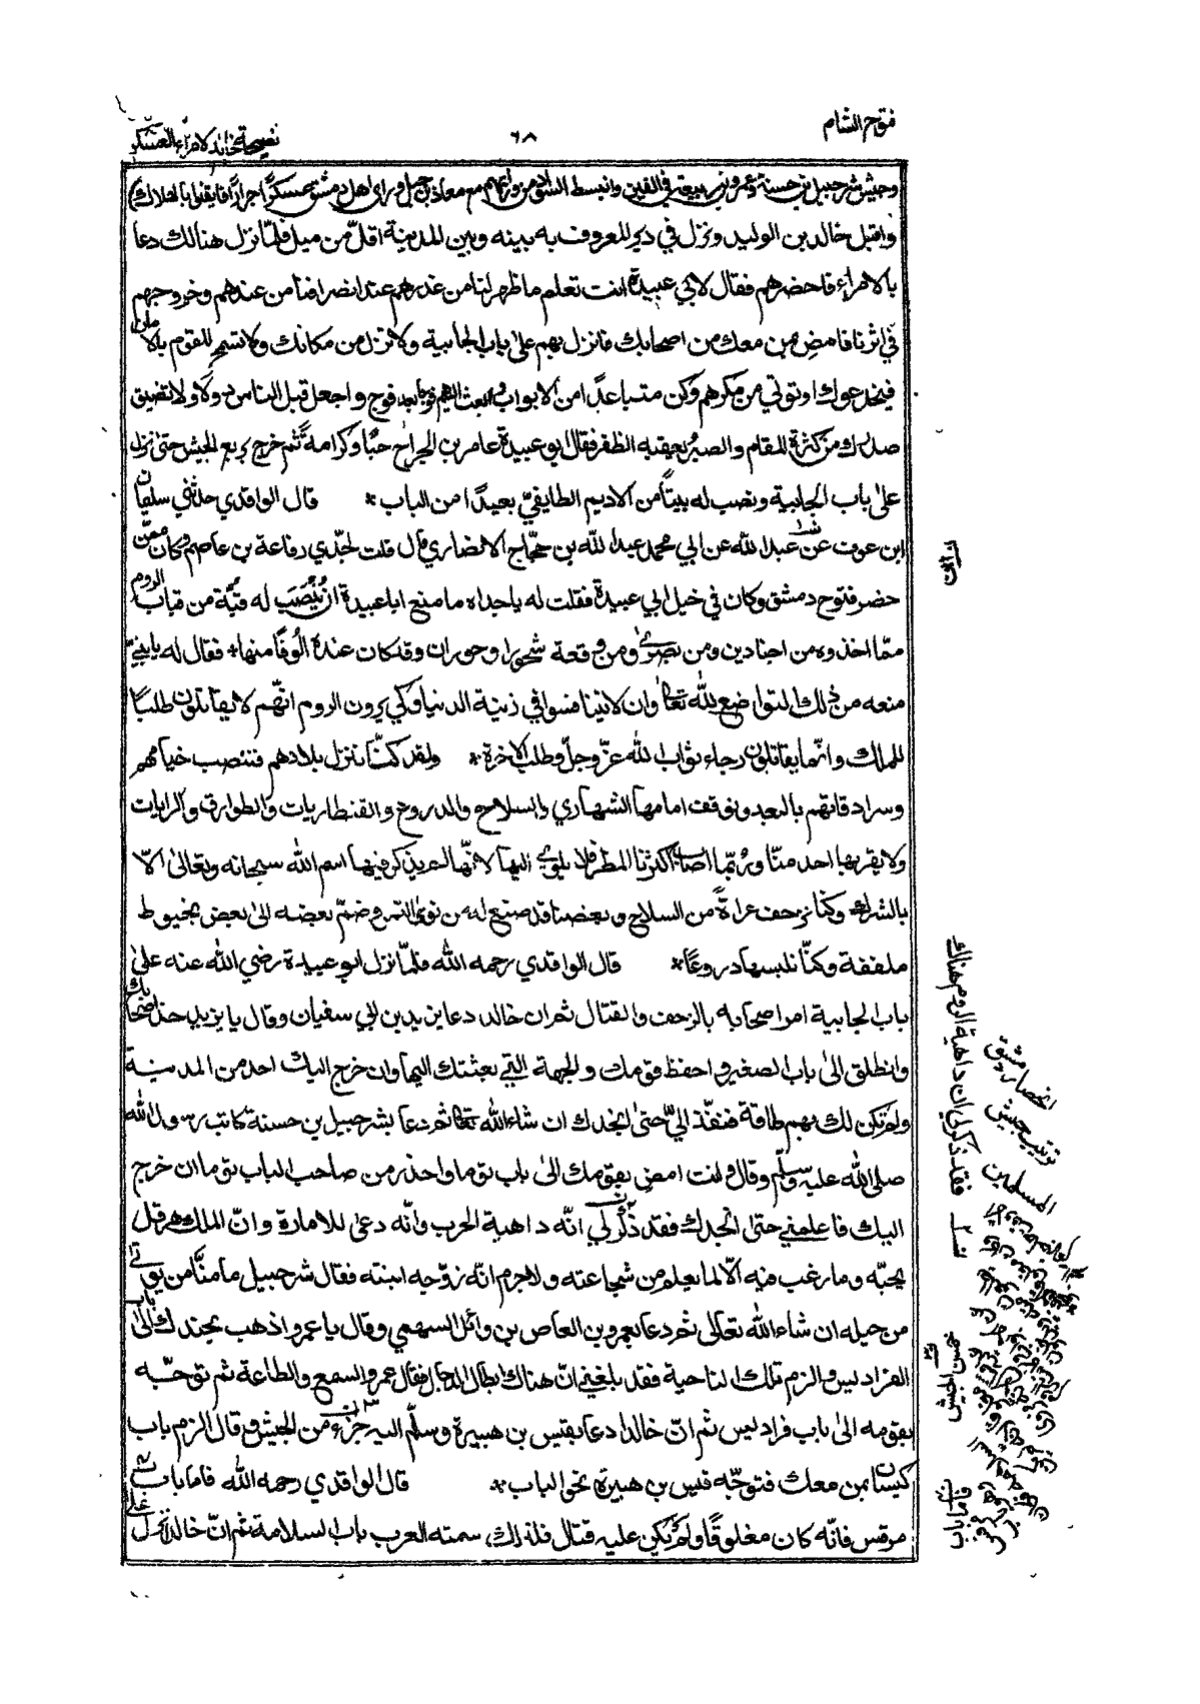 فتوح الشام
٦٨
نصيحة خالد لامراء العسكر
وجيش شرجبيل بن حسنة وعمرو بن ربيعة في الفين وانبسط السواد من ورائهم مع معاذ بن جبل وراى اهل دمشق عسكرًا جرارًا فايقنوا بالهلاك
واقبل خالد بن الوليد ونزل في دير المعروف به بينه وبين المدينة اقلّ من ميل فلمّا نزل هنالك دعا
بالامراء فاحضرهم فقال لابي عبيدة انت تعلم ما ظهر لنا من غدرهم عند انصرافنا من عندهم وخروجهم
في اثرنا فامضِ بمن معك من اصحابك فانزل بهم على باب الجابية ولا تزل من مكانك ولا تسمح للقوم بالامان
فيخدعوك او تؤتي من مكرهم وكن متباعدًا من الابواب وابعث اليهم فوجًا بعد فوج واجعل قبل الناس دولًا ولا تضيق
صدرك من كثرة المقام والصبر يعقبه الظفر فقال ابو عبيدة عامر بن الجراح حبًّا وكرامةً ثم خرج بربع الجيش حتى نزل
على باب الجابية ونصب له بيتًا من الاديم الطايفيّ بعيدًا من الباب * قال الواقدي حدثني سليمان
ابن عوف عن عبد الله عن ابي محمد عبد الله بن حجاج الانصاري قال قلت لجدّي رفاعة بن عاصم وكان ممّن
حضر فتوح دمشق وكان في خيل ابي عبيدة فقلت له يا جداه ما منع ابا عبيدة ان يُنصَب له قبّة من قباب الروم
ممّا اخذوه من اجنادين ومن بصرى ومن وقعة شحورا وحوران وقد كان عنده الوفًا منها * فقال له يا بنيّ
منعه من ذلك التواضع لله تعالى وان لا يتنافسوا في زينة الدنيا ولكي يرون الروم انّهم لا يقاتلون طلبًا
للملك وانّما يقاتلون رجاء ثواب الله عزّ وجلّ وطلب الآخرة * ولقد كنّا ننزل بلادهم فننصب خيامهم
وسرادقاتهم بالبعد ونوقف امامها الشهاري والسلاح والدروع والقنطاريات والطوارق والرايات
ولا يقربها احد منّا وربّما اصاب اكثرنا المطر فلا يلوي اليها لانّها لم يذكر فيها اسم الله سبحانه وتعالى الّا
بالشرك وكنّا نزحف عراةً من السلاح وبعضنا قد صنع له من نوى التمر وضمّ بعضه الى بعض بخيوط
ملففة وكنّا نلبسها دروعًا * قال الواقدي رحمه الله فلمّا نزل ابو عبيدة رضي الله عنه على
باب الجابية امر اصحابه بالزحف والقتال ثم ان خالد دعا يزيد بن ابي سفيان وقال يا يزيد خذ اصحابك
وانطلق الى باب الصغير واحفظ قومك والجهة التي بعثتك اليها وان خرج اليك احد من المدينة
ولم تكن لك بهم طاقة فنفّذ اليّ حتى انجدك ان شاء الله تعالى ثم دعا بشرجبيل بن حسنة كاتب رسول الله
صلى الله عليه وسلّم وقال وانت امض بقومك الى باب توما واحذر من صاحب الباب توما ان خرج
اليك فاعلمني حتى انجدك فقد ذُكر لي انّه داهية الحرب وانّه دعى للامارة وانّ الملك هرقل
يحبّه وما رغب فيه الّا لما يعلم من شجاعته ولا جرم انّه زوّجه ابنته فقال شرجبيل ما منّا من يؤتى
من حيله ان شاء الله تعالى ثم دعا بعمرو بن العاص بن وائل السهمي وقال يا عمرو اذهب بجندك الى باب
الفراديس والزم تلك الناحية فقد بلغني انّ هناك ابطال الرجال فقال عمرو السمع والطاعة ثم توجّه
بقومه الى باب فراديس ثم انّ خالدا دعا بقيس بن هبيرة وسلّم اليه جزء من الجيش وقال الزم باب
كيسان بمن معك فتوجّه قيس بن هبيرة نحو الباب * قال الواقدي رحمه الله فاما باب
مرقس فانّه كان مغلوقًا ولم يكن عليه قتال فلذلك سمته العرب باب السلامة ثم انّ خالد نزل على
فقد ذكر لي ان داهية الروم هناك
انحصار دمشق
ترتيب جيش
المسلمين
خمس الجيش
فاما باب